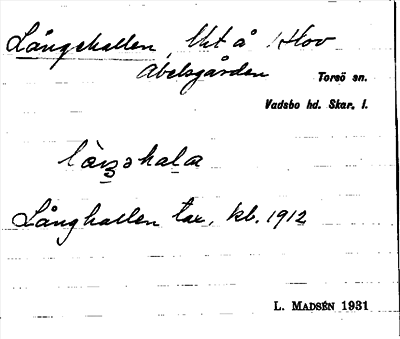 Långehallen, Utt å Hov
Abelsgården Torsö sn.
Vadsbo hd. Skar. l.
Långhallen tax. kb. 1912
L. MADSÉN 1931